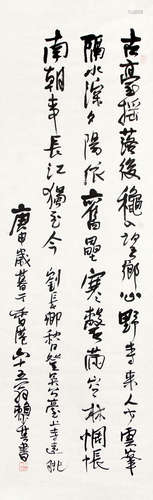 古臺摇落後穐入望鄉心野寺來人少雲峯
隔水深夕陽依舊壘寒磬滿空林惆悵
南朝事長江獨至今 劉長卿秋登吳公臺上寺遠眺
庚申歲暮于香港六十五翁 書